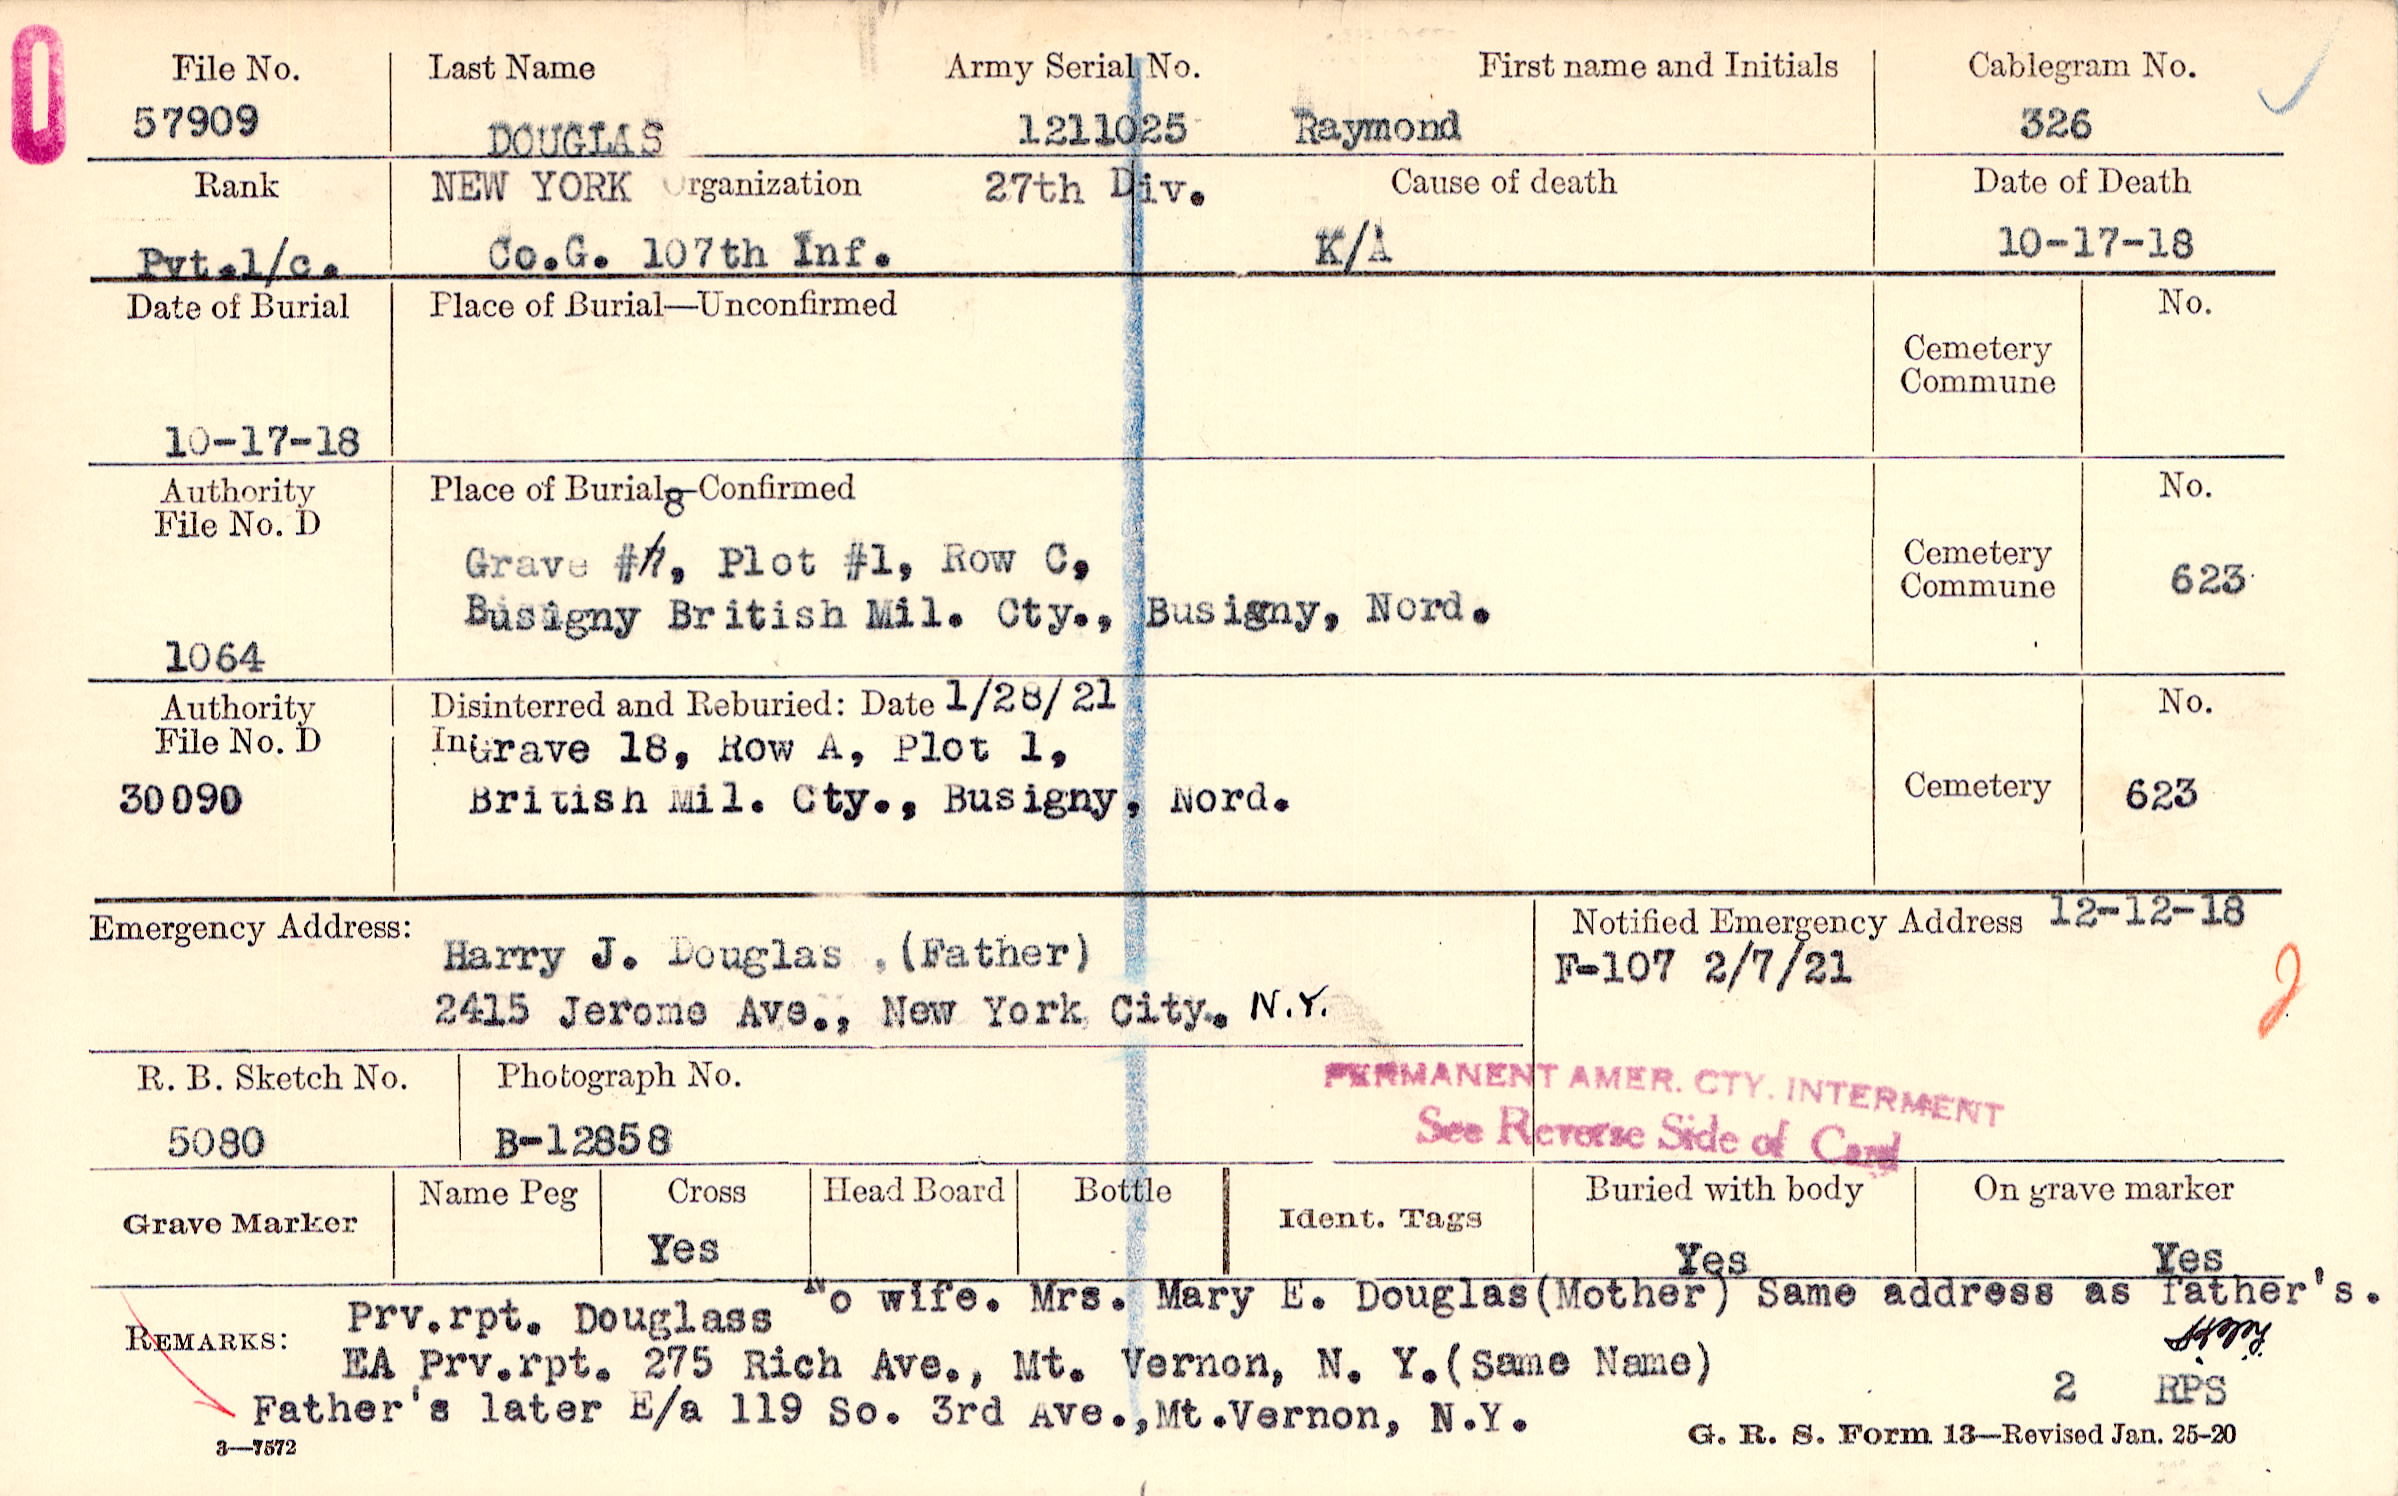 File No. Last Name Army Serial No. First name and Initials Cablegram No.
57909 DOUGLAS 1211025 Raymond 326
Rank NEW YORK Organization 27th Div. Cause of death Date of Death
Pvt.1/c. Co.G. 107th Inf. K/A 10-17-18
Date of Burial Place of Burial—Unconfirmed No.
Cemetery
Commune
10-17-18
Authority Place of Burial—Confirmed No.
File No. D 8
Grave #, Plot #1, Row C, Cemetery
Commune 623
Busigny British Mil. Cty., Busigny, Nord.
1064
Authority Disinterred and Reburied: Date 1/28/21 No.
File No. D In Grave 18, Row A, Plot 1,
30090 British Mil. Cty., Busigny, Nord. Cemetery 623
Emergency Address: Notified Emergency Address 12-12-18
Harry J. Douglas ,(Father) F-107 2/7/21
2415 Jerome Ave., New York City. N.Y.
2
R. B. Sketch No. Photograph No. PERMANENT AMER. CTY. INTERMENT
5080 B-12858 See Reverse Side of Card
Grave Marker Name Peg Cross Head Board Bottle Ident. Tags Buried with body On grave marker
Yes Yes Yes
No wife. Mrs. Mary E. Douglas(Mother) Same address as father's.
REMARKS: Prv.rpt. Douglass
EA Prv.rpt. 275 Rich Ave., Mt. Vernon, N. Y.(Same Name)
2 RPS
Father's later E/a 119 So. 3rd Ave.,Mt.Vernon, N.Y.
3—7572 G. R. S. Form 13—Revised Jan. 25-20